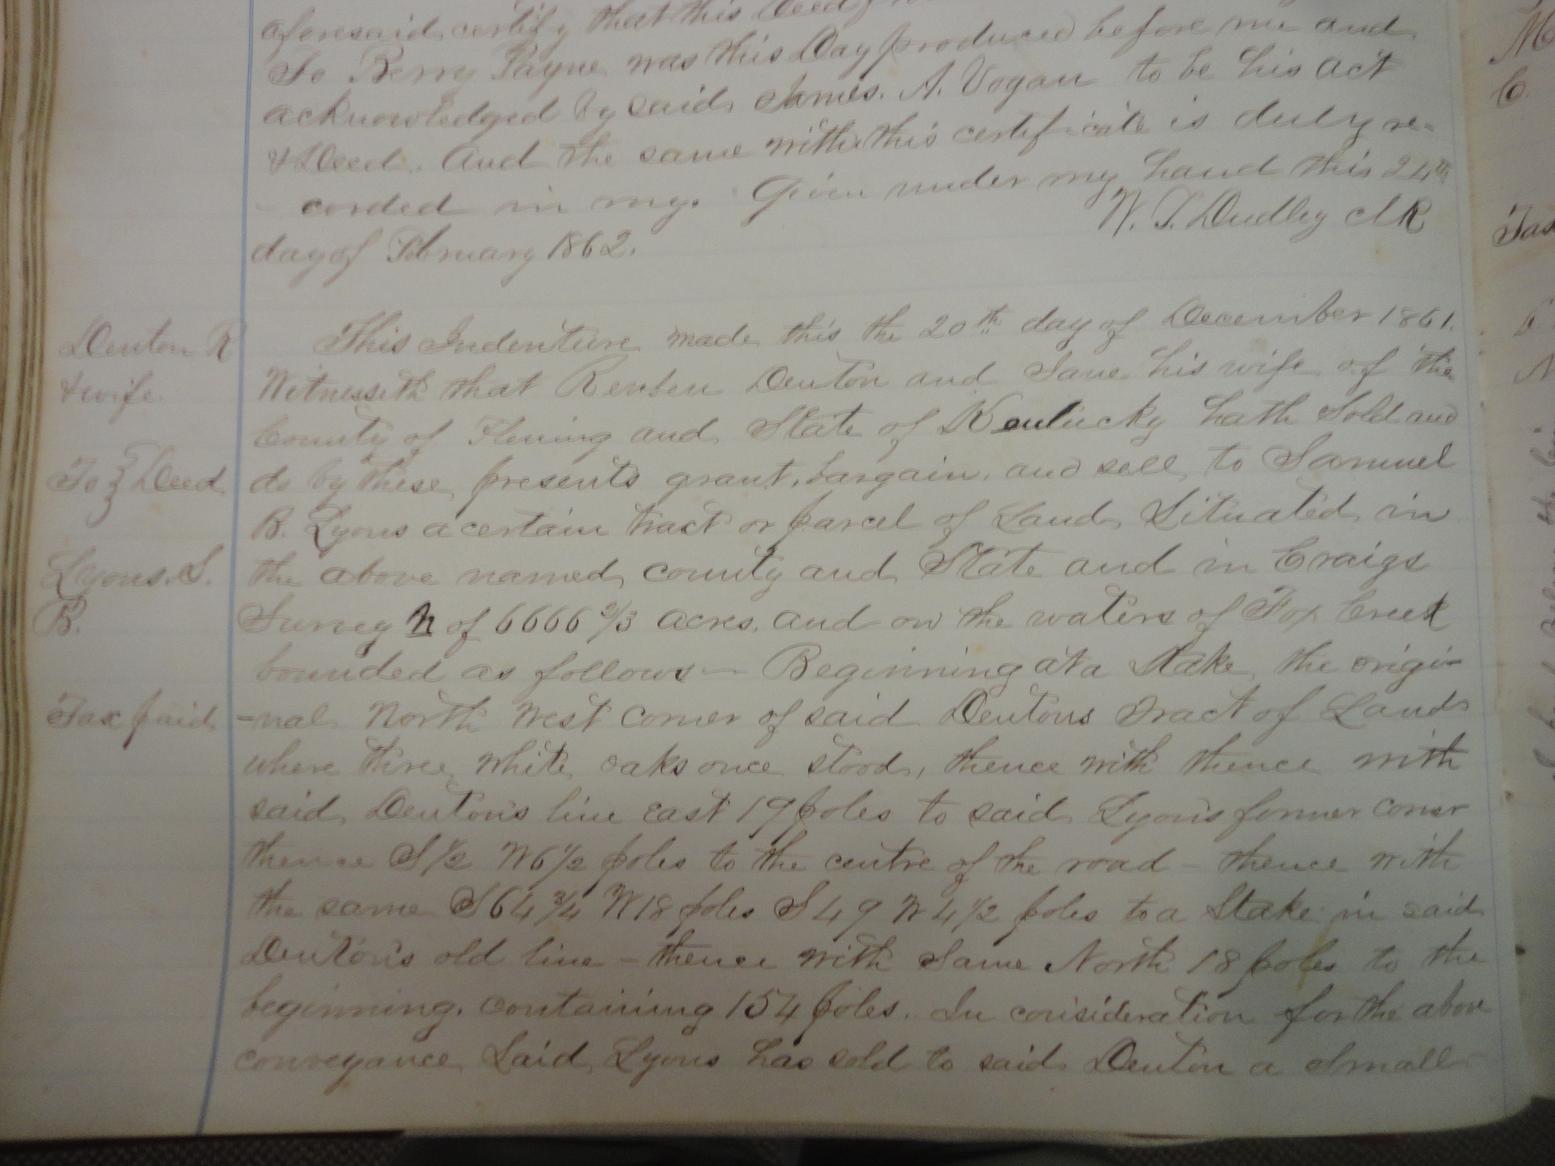 aforesaid certify that this Deed
To Berry Payne was this Day produced before me and
acknowledged by said James. A. Vogan to be his act
& Deed. And the same with this certificate is duly re-
corded in my. Given under my hand this 24th
day of February 1862.
W. T. Dudley Clk
Denton R
& wife.
To } Deed
Lyons. S.
B.
Tax paid
This Indenture made this the 20th day of December 1861.
Witnesseth that Reuben Denton and Jane his wife of the
County of Fleming and State of Kentucky hath Sold and
do by these presents grant, bargain, and sell to Samuel
B. Lyons a certain tract or parcel of Land Situated in
the above named county and State and in Craigs
Survey of 6666 2/3 acres, and on the waters of Fox Creek
bounded as follows— Beginning at a Stake the origi-
-nal North West corner of said Dentons Tract of Land
where three white oaks once stood, thence with thence with
said Denton's line east 19 poles to said Lyon's former corner
thence S 1/2 W 6 1/2 poles to the centre of the road – thence with
the same S 64 3/4 W 18 poles S 49 W 4 1/2 poles to a Stake in said
Denton's old line – thence with Same North 18 poles to the
beginning. containing 154 poles. In consideration for the above
conveyance Said Lyons has sold to said Denton a Small
Tax